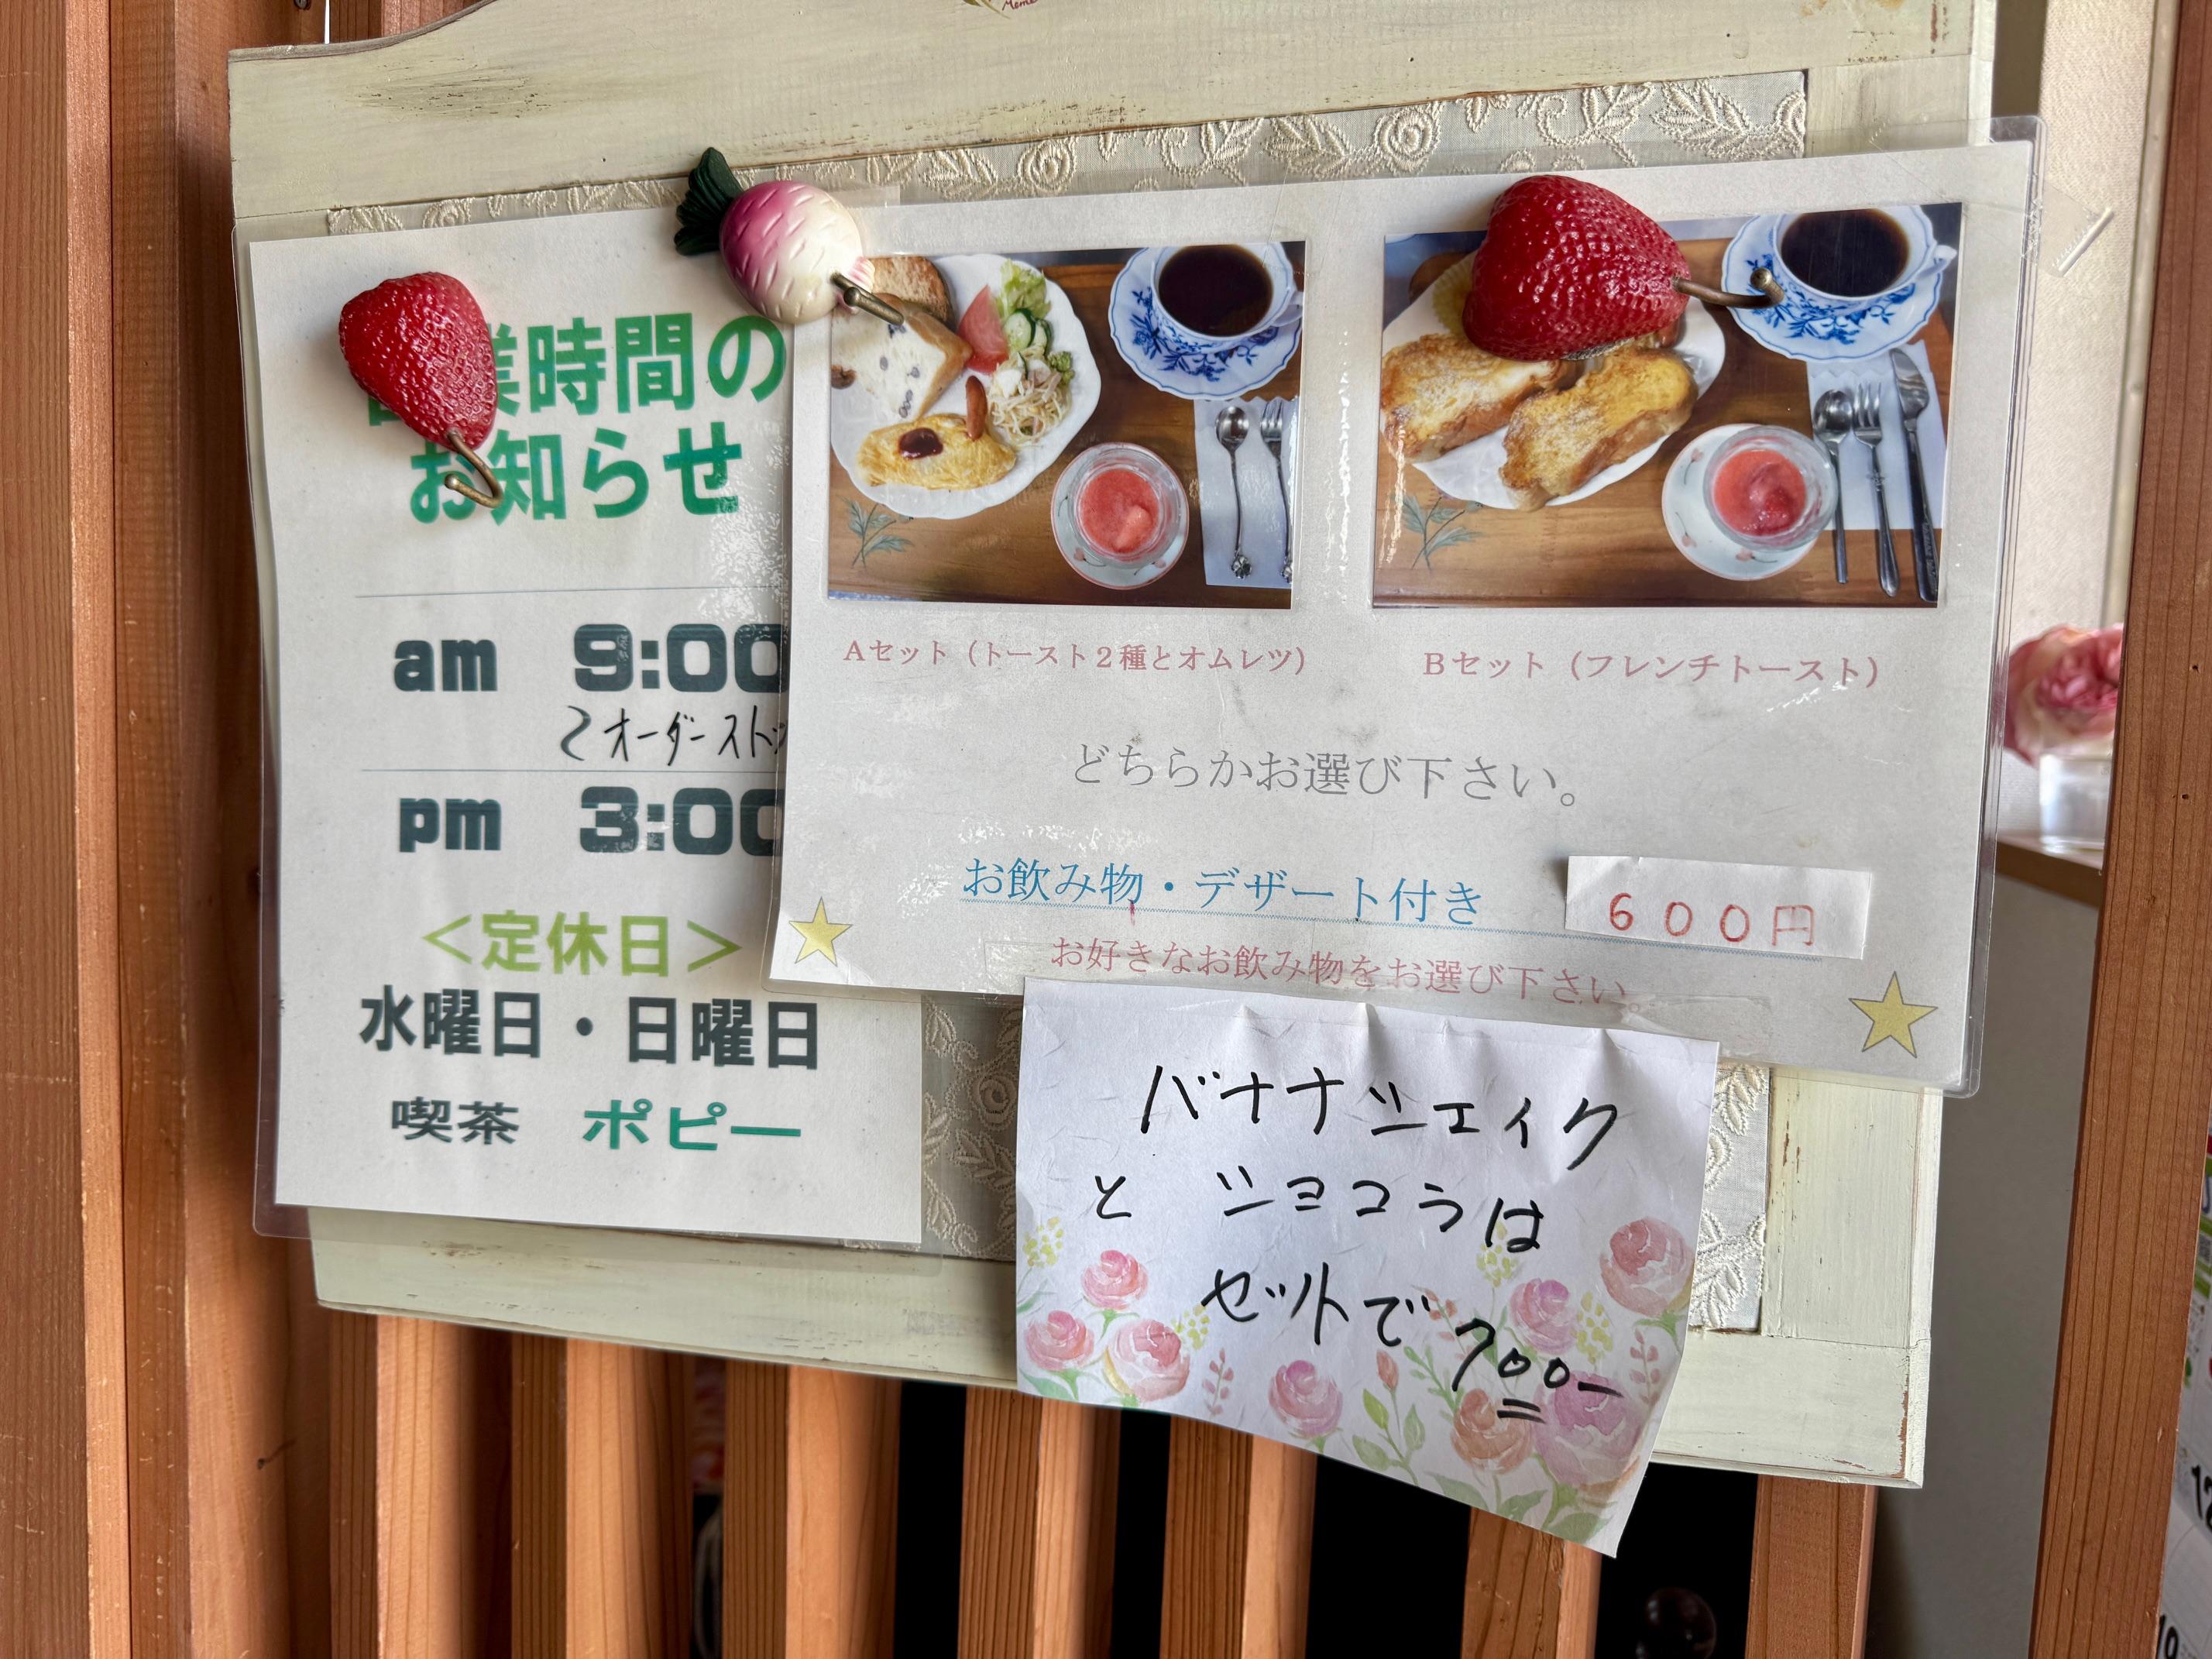 業時間の
お知らせ
am 9:00
〜オーダーストッ
pm 3:00
＜定休日＞
水曜日・日曜日
喫茶 ポピー
Aセット（トースト２種とオムレツ）
Bセット（フレンチトースト）
どちらかお選び下さい。
お飲み物・デザート付き 600円
お好きなお飲み物をお選び下さい。
バナナシェイク
と ショコラは
セットで700-